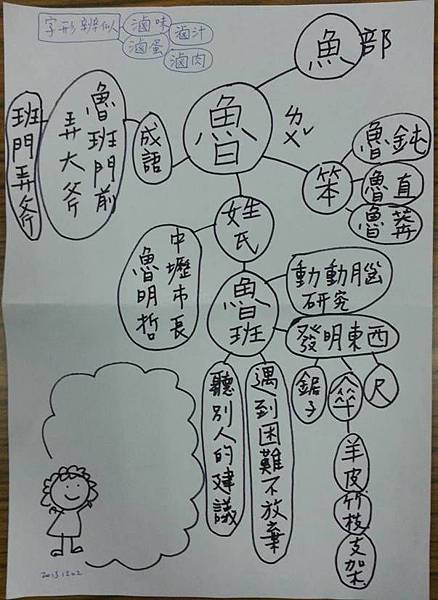 字形辨似
滷味
滷汁
滷蛋
滷肉
魚部
魯
ㄌㄨˇ
笨
魯鈍
魯直
魯莽
成語
魯班門前
弄大斧
班門弄斧
姓氏
中壢市長
魯明哲
魯班
動動腦
研究
發明東西
鋸子
傘
尺
羊皮
竹枝
支架
聽別人的建議
遇到困難不放棄
2013.12.02